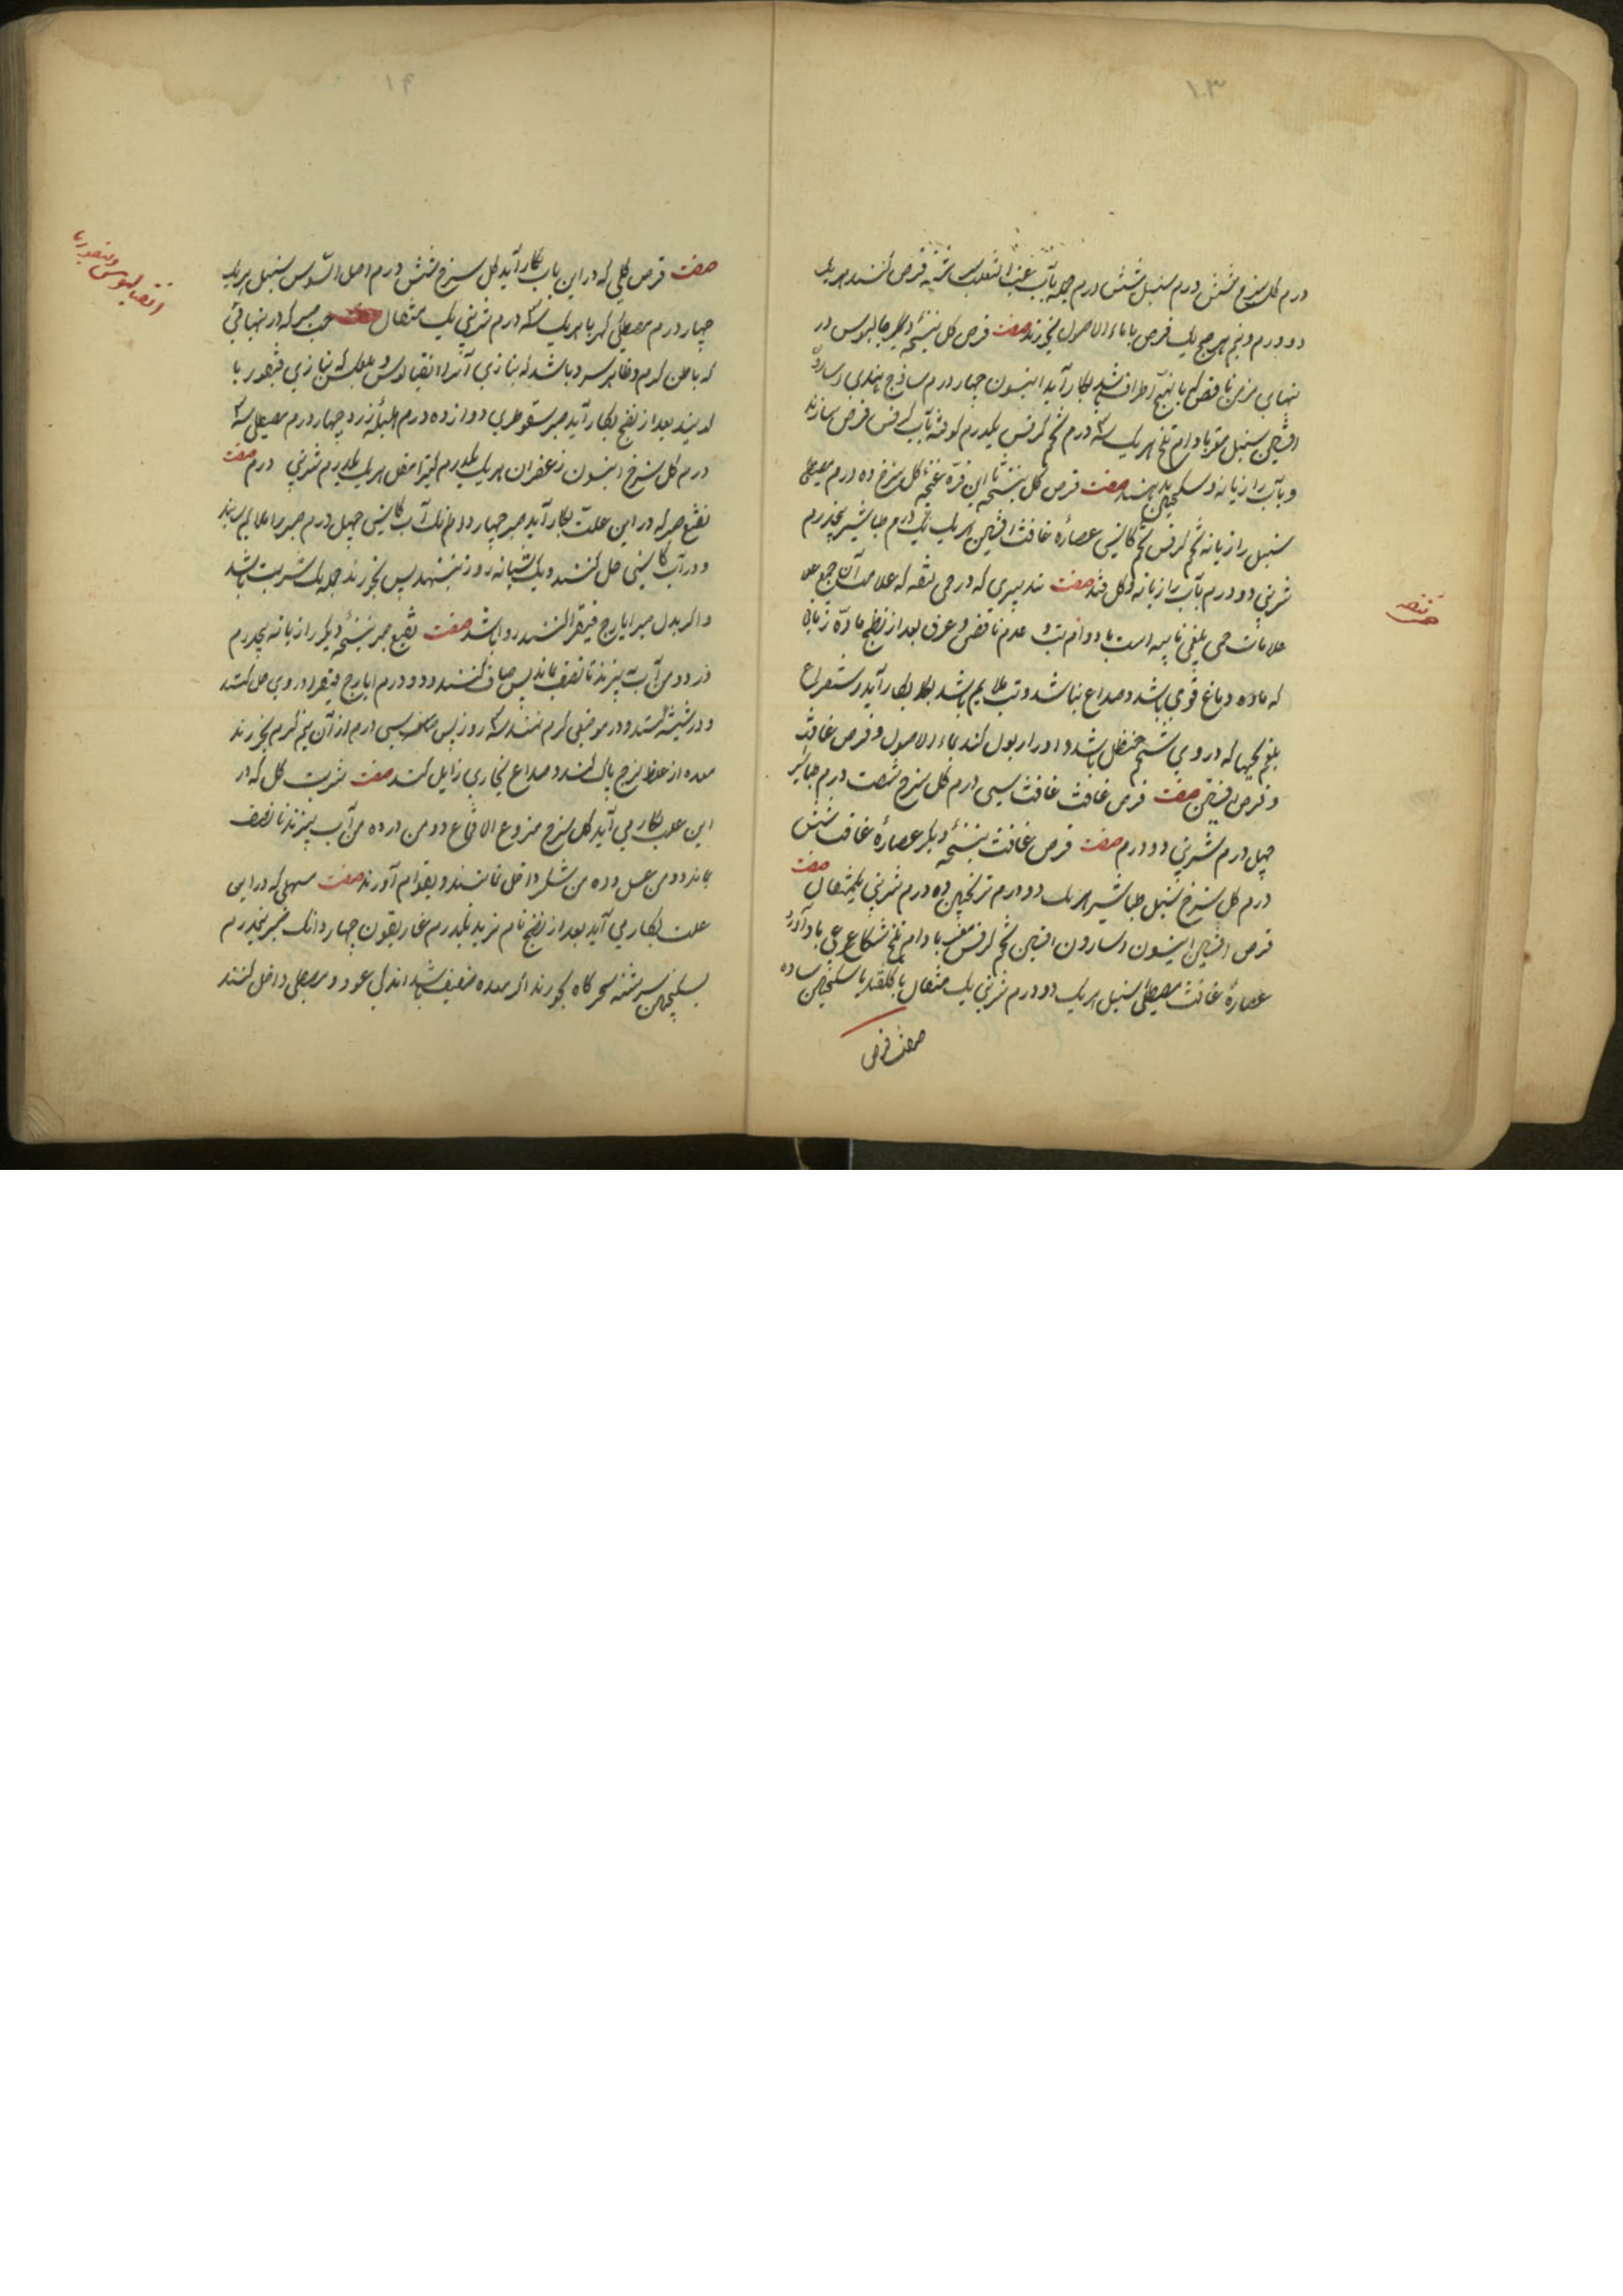 ۱۳
درم گل سرخ شش درم سنبل شش درم جمله بآب عنب الثعلب سرشته قرص کنند هریک
دو درم و نیم هر صبح یک قرص با ماء الاصول بخورند صفت قرص گل بنسخهٔ دیگر جالینوس در
تبهای مزمن نافض که با تهیج اطراف باشد بکار آید انیسون چهار درم ساذج هندی اسارون
افسنتین سنبل مغز بادام تلخ هریک سه درم تخم کرفس یکدرم کوفته بآب کرفس قرص سازند
و بآب رازیانه و سکنجبین بدهند صفت قرص گل بنسخهٔ ابن قره غنچهٔ گل سرخ ده درم مصطکی
سنبل رازیانه تخم کرفس تخم کاسنی عصارهٔ غافث افسنتین هریک یک درم طباشیر پنجدرم
شربتی دو درم بآب رازیانه و گل قند صفت تدبیری که در حمی لثقه که علامت آن جمیع علا
علامات حمی بلغمی نایبه است با دوام تب و عدم نافض و عرق بعد از نضج ماده زمانی
که ماده دماغ قوی باشد و صداع نباشد و تب ملایم باشد بکار آید و استفراغ
بلغم بحبها که در وی شحم حنظل باشد و ادرار بول کند بماء الاصول و قرص غافث
و قرص افسنتین صفت قرص غافث غافث سی درم گل سرخ شصت درم طباشیر
چهل درم شربتی دو درم صفت قرص غافث بنسخهٔ دیگر عصارهٔ غافث شش
درم گل سرخ سنبل طباشیر هریک دو درم ترنجبین ده درم شربتی یکمثقال صفت
قرص افسنتین انیسون اسارون افسنتین تخم کرفس مغز بادام تلخ شکاعی باد آورد
عصارهٔ غافث مصطکی سنبل هریک دو درم شربتی یک مثقال با گلقند یا سکنجبین ساده
صفت قرص
حمی لثقه
۱۴
صفت قرص گلی که در این باب بکار آید گل سرخ شش درم اصل السوس سنبل هریک
چهار درم مصطکی کهربا هریک سه درم شربتی یک مثقال صفت حب صبر که در تبهائی
که باطن گرم و ظاهر سرد باشد که بتازی آنرا انقیالوس و بعکس که بتازی لیفوریا
گویند بعد از نضج بکار آید صبر سقوطری دوازده درم هلیلهٔ زرد چهار درم مصطکی سه
درم گل سرخ انیسون زعفران هریک یکدرم کتیرا مقل هریک یکدرم شربتی درم صفت
نقیع صبر که در این علت بکار آید صبر چهار درم آب کاسنی چهل درم صبر را
و در آب کاسنی حل کنند و یک شبانه روز بنهند پس بخورند جمله یک شربت باشد
و اگر بدل صبر ایارج فیقرا کنند روا باشد صفت نقیع صبر بنسخهٔ دیگر رازیانه پنجدرم
در دو من آب بپزند تا نصف بماند پس صاف کنند و دو درم ایارج فیقرا در وی حل کنند
و در شیشه کنند و در موضعی گرم نهند سه روز پس سی درم از آن نیم گرم بخورند
معده از خلط لزج پاک کند و صداع بخاری زایل کند صفت شربت گل که در
این علت بکار می آید گل سرخ منزوع الاقماع دو من در ده من آب بپزند تا نصف
بماند دو من عسل و ده من شکر داخل نمایند و بقوام آورند صفت مسهلی که در این
علت بکار می آید بعد از نضج تام تربد یکدرم غاریقون چهار دانگ صبر نیمدرم
بسکنجبین سرشته سحرگاه بخورند اگر معده ضعیف باشد اندک عود و مصطکی داخل کنند
انقیالوس و لیفوریا